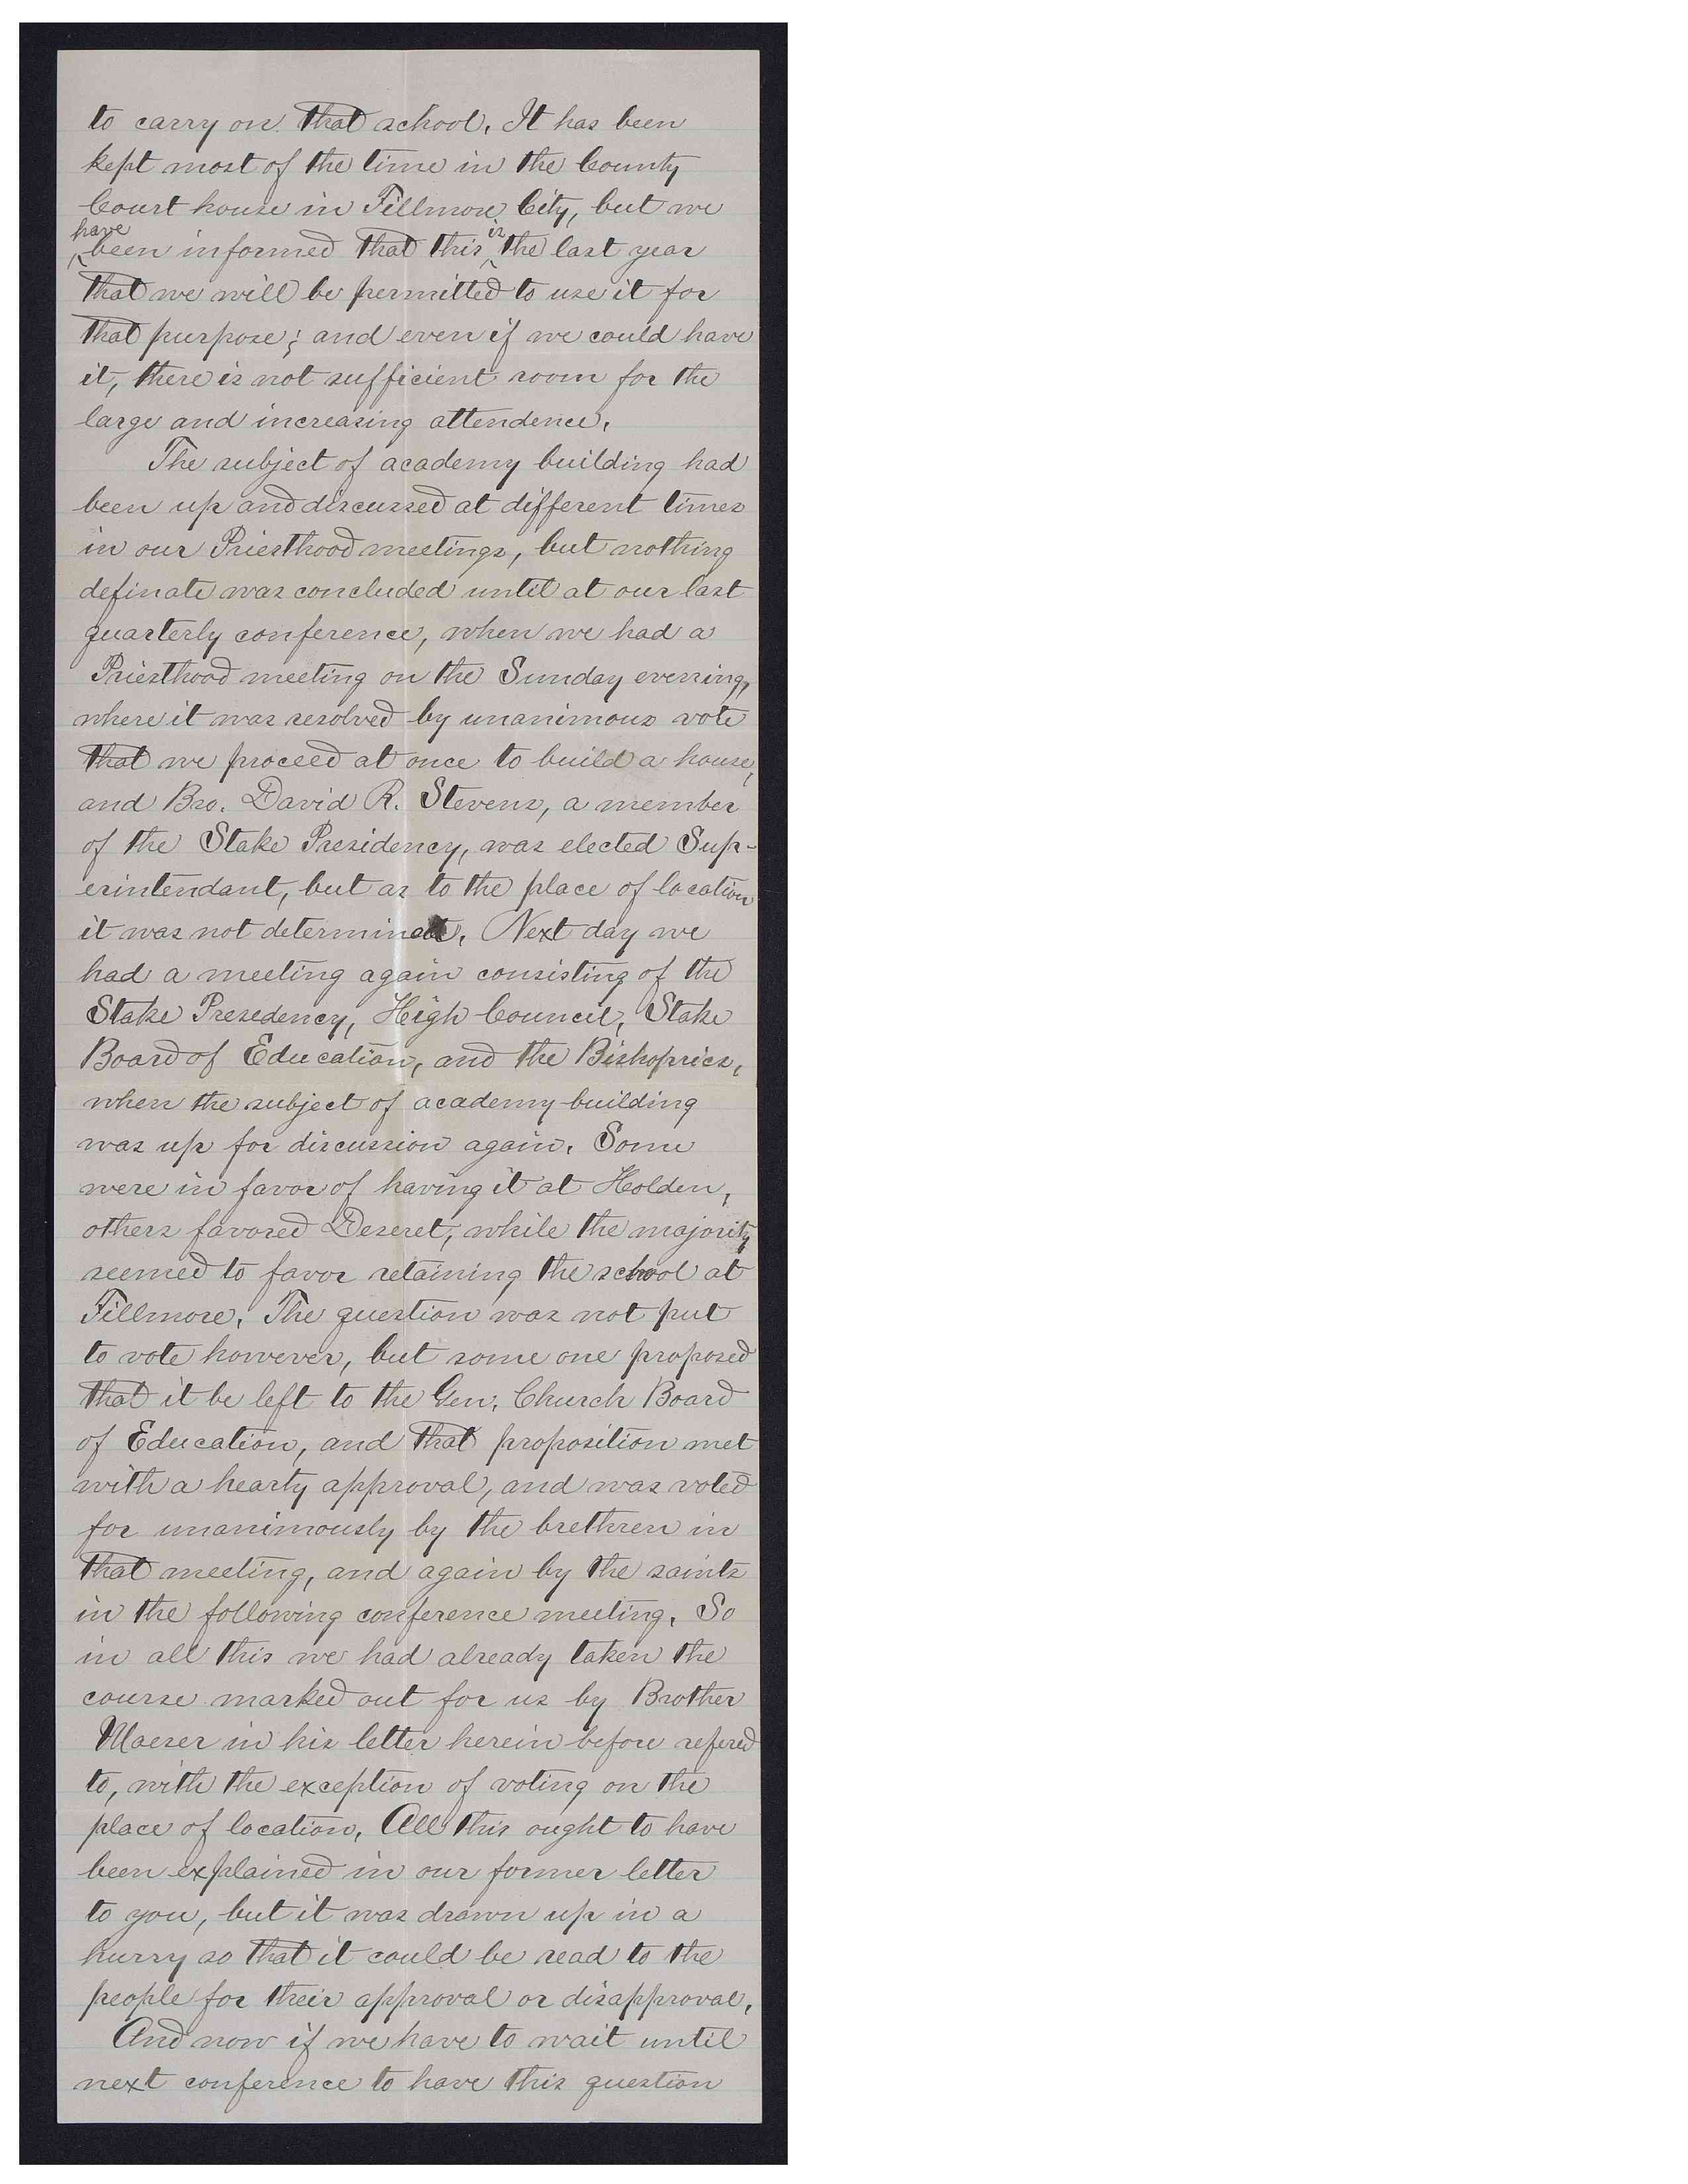 to carry on that school. It has been
kept most of the time in the County
Court house in Fillmore City, but we
have been informed that this is the last year
that we will be permitted to use it for
that purpose; and even if we could have
it, there is not sufficient room for the
large and increasing attendence.
The subject of academy building had
been up and discussed at different times
in our Priesthood meetings, but nothing
definate was concluded until at our last
quarterly conference, when we had a
Priesthood meeting on the Sunday evening,
where it was resolved by unanimous vote
that we proceed at once to build a house,
and Bro. David R. Stevens, a member
of the Stake Presidency, was elected Sup-
erintendant, but as to the place of location
it was not determinate. Next day we
had a meeting again consisting of the
Stake Presedency, High Council, Stake
Board of Education, and the Bishoprics,
when the subject of academy building
was up for discussion again. Some
were in favor of having it at Holden,
others favored Deseret, while the majority
seemed to favor retaining the school at
Fillmore. The question was not put
to vote however, but some one proposed
that it be left to the Gen. Church Board
of Education, and that proposition met
with a hearty approval, and was voted
for unanimously by the brethren in
that meeting, and again by the saints
in the following conference meeting. So
in all this we had already taken the
course marked out for us by Brother
Maeser in his letter herein before refered
to, with the exception of voting on the
place of location. All this ought to have
been explained in our former letter
to you, but it was drawn up in a
hurry so that it could be read to the
people for their approval or disapproval.
And now if we have to wait until
next conference to have this question